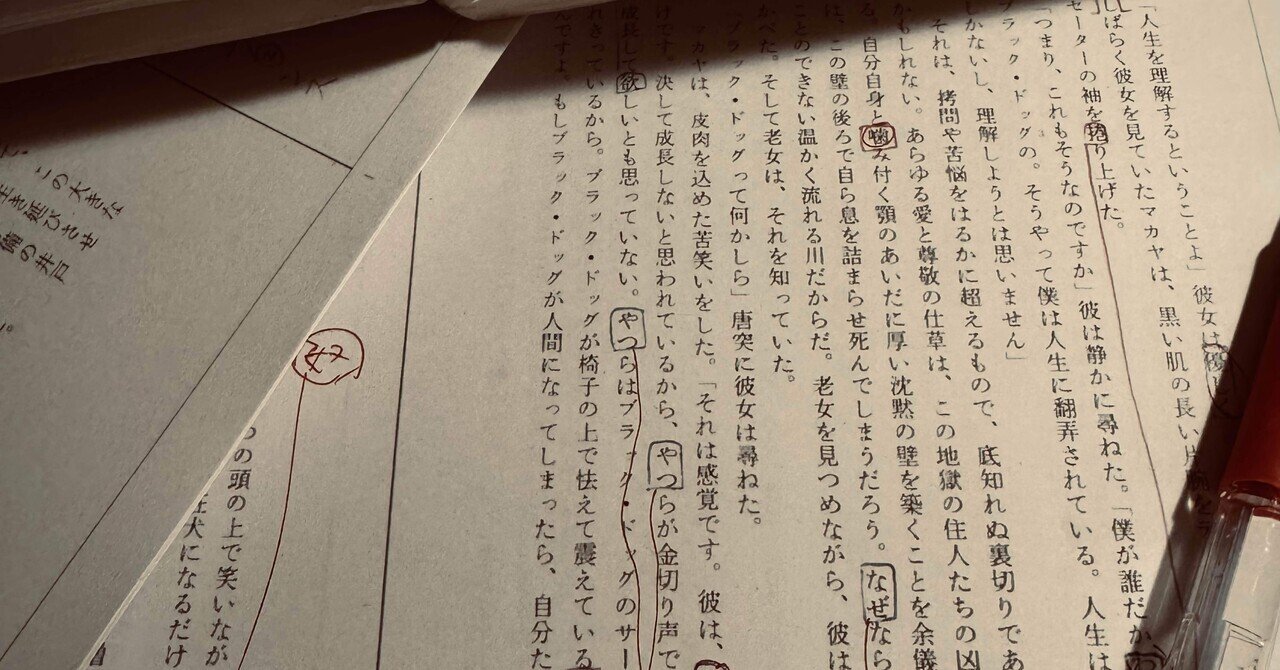 「人生を理解するということよ」彼女は優し
しばらく彼女を見ていたマカヤは、黒い肌の長い片腕を
セーターの袖を捲り上げた。
「つまり、これもそうなのですか」彼は静かに尋ねた。「僕が誰だか
ブラック・ドッグの。そうやって僕は人生に翻弄されている。人生は
しかないし、理解しようとは思いません」
それは、拷問や苦悩をはるかに超えるもので、底知れぬ裏切りであ
かもしれない。あらゆる愛と尊敬の仕草は、この地獄の住人たちの凶
る。自分自身と噛み付く顎のあいだに厚い沈黙の壁を築くことを余儀
は、この壁の後ろで自ら息を詰まらせ死んでしまうだろう。なぜなら
ことのできない温かく流れる川だからだ。老女を見つめながら、彼は
かべた。そして老女は、それを知っていた。
「ブラック・ドッグって何かしら」唐突に彼女は尋ねた。
マカヤは、皮肉を込めた苦笑いをした。「それは感覚です。彼は、
けです。決して成長しないと思われているから、やつらが金切り声で
成長して欲しいとも思っていない。やつらはブラック・ドッグのサー
れきっているから。ブラック・ドッグが椅子の上で怯えて震えている
んですよ。もしブラック・ドッグが人間になってしまったら、自分た
奴
の頭の上で笑いなが
狂犬になるだけ
この大きな
生き延びさせ
備の井戸